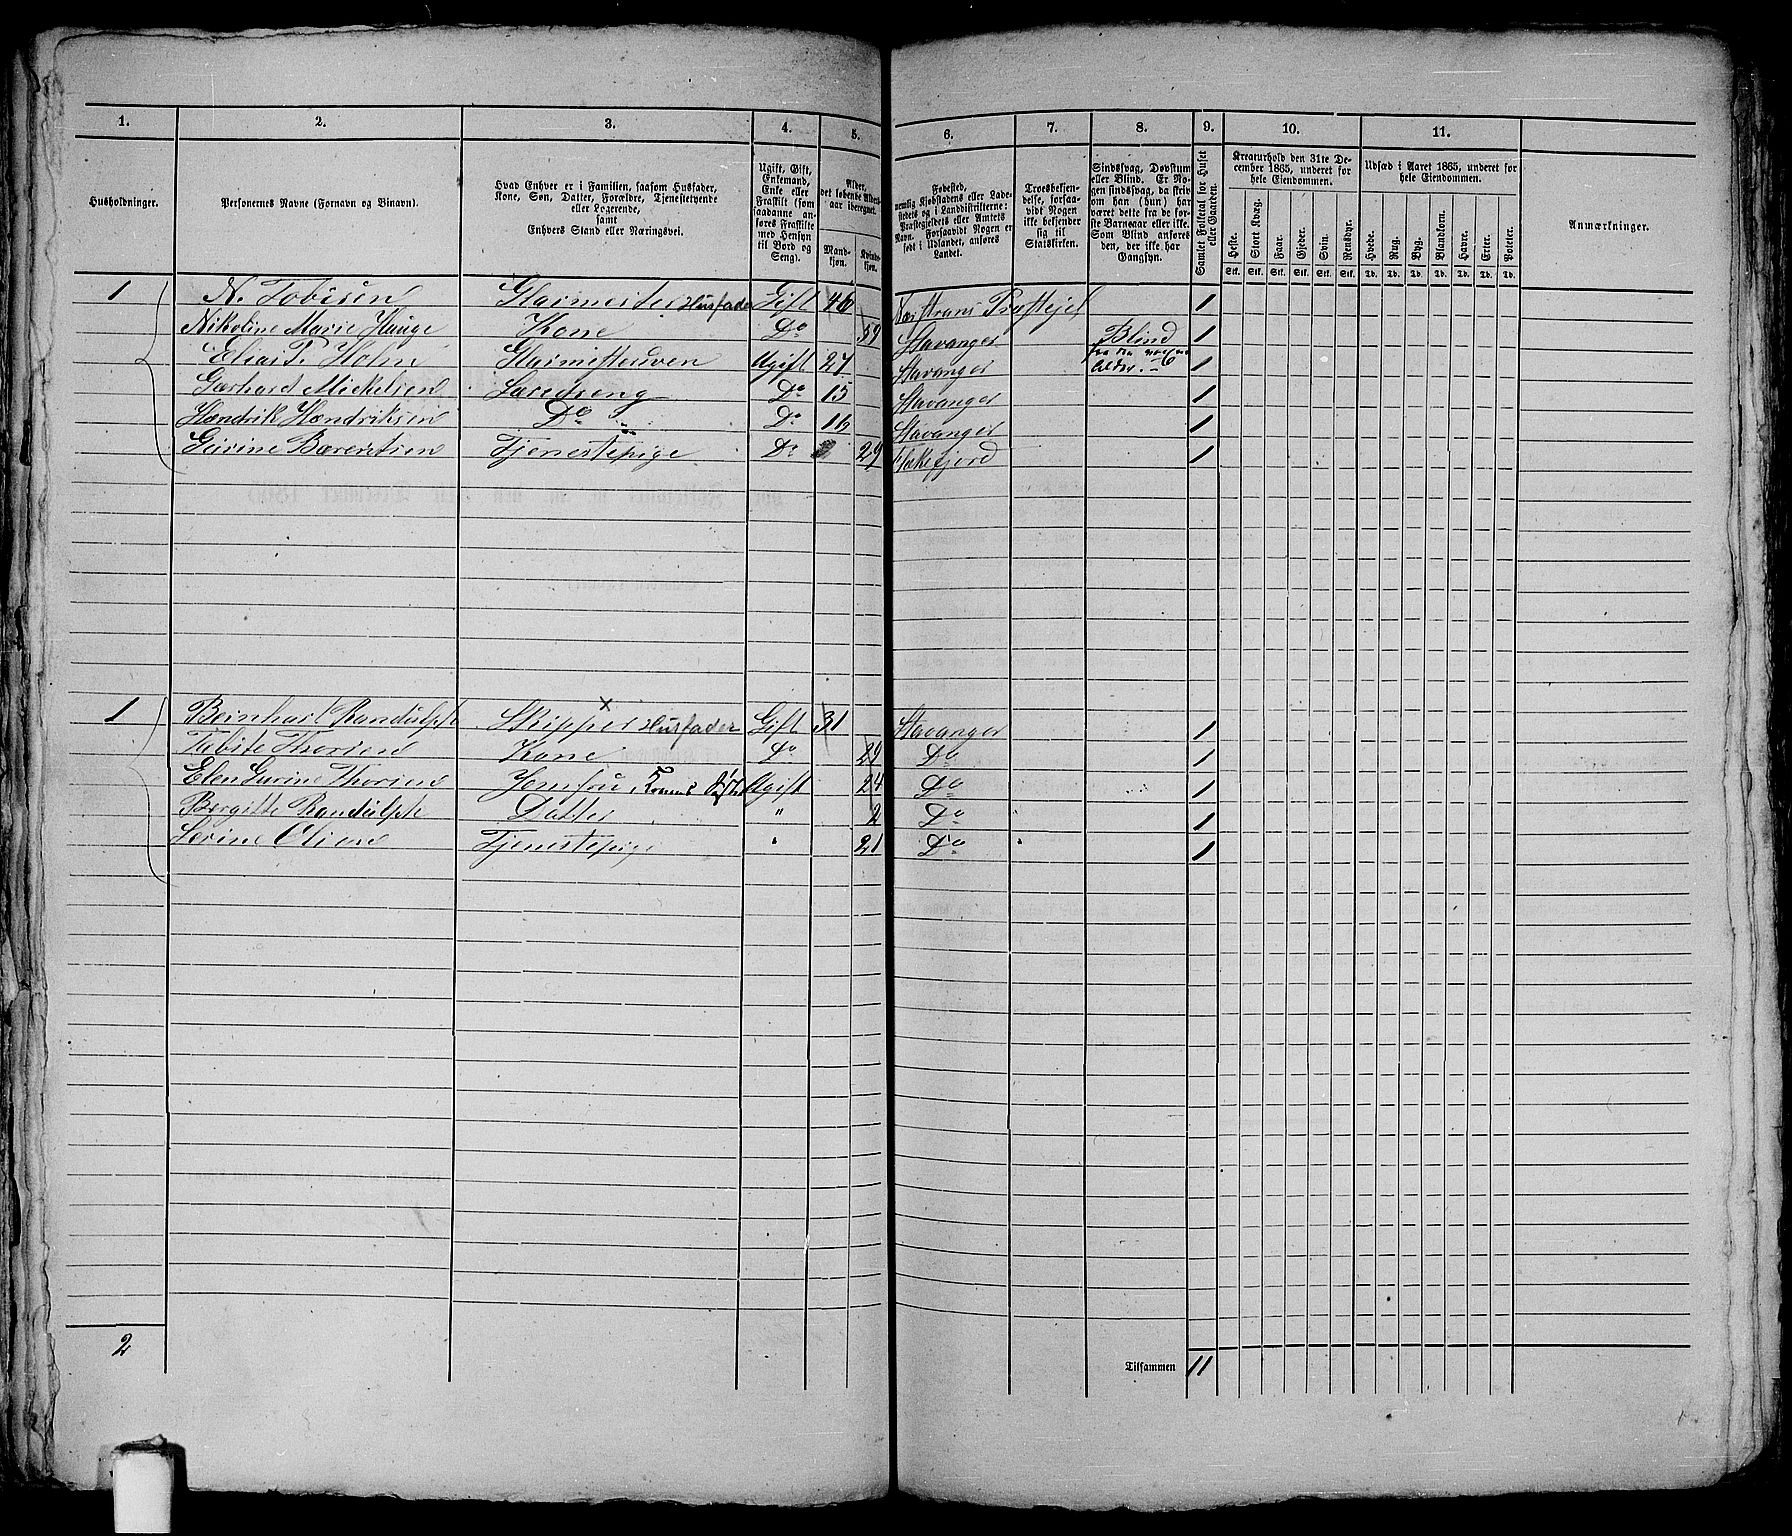 1. 2. 3. 4. 5. 6. 7. 8. 9. 10. 11.
Husholdninger.
Personernes Navne (Fornavn og Binavn).
Hvad Enhver er i Familien, saasom Husfader,
Kone, Søn, Datter, Forældre, Tjenestetyende
eller Logerende,
samt
Enhvers Stand eller Næringsvei.
Ugift, Gift,
Enkemand,
Enke eller
Fraskilt (som
saadanne anføres
Fraskilte
med Hensyn
til Bord og
Seng).
Alder,
det løbende Alders-
aar iberegnet.
Mand-
kjøn.
Kvinde-
kjøn.
Fødested,
nemlig Kjøbstadens eller Lade-
stedets og i Landdistrikterne:
Præstegjeldets eller Amtets
Navn. Forsaavidt Nogen er
født i Udlandet, anføres
Landet.
Troesbekjen-
delse, forsaa-
vidt Nogen
ikke bekjender
sig til
Statskirken.
Sindssvag, Døvstum
eller Blind. Er No-
gen sindssvag, da skriv
om han (hun) har
været dette fra de før-
ste Barneaar eller ikke.
Som Blind anføres
den, der ikke har
Gangsyn.
Samlet Folketal for Huset
eller Gaarden.
Kreaturhold den 31te De-
cember 1865, underet for
hele Eiendommen.
Heste. Stort Kvæg. Faar. Gjeder. Svin. Rensdyr.
Stk. Stk. Stk. Stk. Stk. Stk.
Udsæd i Aaret 1865, underet for
hele Eiendommen.
Hvede. Rug. Byg. Blandkorn. Havre. Erter. Poteter.
Td. Td. Td. Td. Td. Td. Td.
Anmærkninger.
1 N. Tobisen Glarmester Husfader Gift 46 Præstejel 1
Nikoline Marie Hauge Kone Do 59 Stavanger Blind 1
Elias T. Holm Glarmestersven Ugift 27 Stavanger 1
Gerhard Mickelsen Læredreng Do 15 Stavanger 1
Hendrik Hendriksen Do Do 16 Stavanger 1
Gurine Bærentsen Tjenestepige Do 29 Flekkefjord 1
1 Beinhart Randulph Skipper Husfader Gift 31 Stavanger 1
Tabite Thorsen Kone Do 29 Do 1
Elen Gurine Thorsen Jomfru, Konens Søster Ugift 24 Do 1
Bergitte Randulph Datter " 2 Do 1
Serine Olsen Tjenestepige " 21 Do 1
2
Tilsammen 11